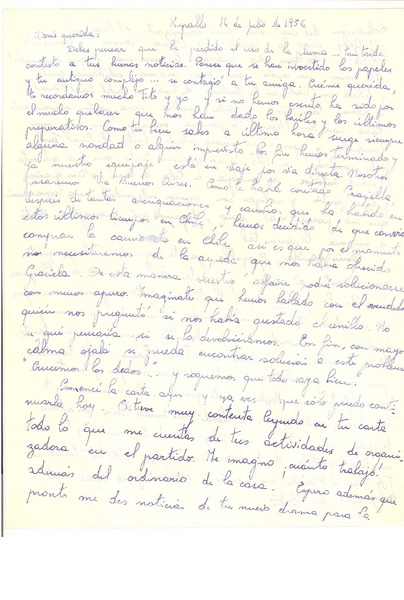 Rapallo 14 de julio de 1956
Doris querida;
Debes pensar que he perdido el uso de la pluma... tan tarde
contesto a tus buenas noticias. Parece que se han invertido los papeles
y tu antiguo complejo... se contagió a tu amiga. Créeme querida,
te recordamos mucho Tito y yo y si no hemos escrito ha sido por
el mucho quehacer que nos han dado los baúles y los últimos
preparativos. Como tu bien sabes a última hora surge siempre
alguna novedad o algún imprevisto. Por fin hemos terminado y
ya nuestro equipaje está en viaje por vía directa. Nosotros
pasaremos vía Buenos Aires. Como te habrá contado Graziella
después de tantas averiguaciones y cambios que ha habido en
estos últimos tiempos en Chile, hemos decidido de que conviene
comprar la camioneta en Chile, así es que por el momento
no necesitaremos de la ayuda que nos había ofrecido
Graciela. De esta manera nuestro affaire podrá solucionarse
con menos apuro. Imagínate que hemos hablado con el vendedor
quién nos preguntó si nos había gustado el anillo. No
se qué pensaría si se lo devolviéramos. En fin, con mayor
calma, ojalá se pueda encontrar solución a este problema
"Crucemos los dedos"... y roguemos que todo vaya bien.
Comencé la carta ayer y ya ves que sólo puedo conti-
nuarla hoy. Estuve muy contenta leyendo en tu carta
todo lo que me cuentas de tus actividades de organi-
zadora en el partido. Me imagino ¡cuánto trabajo!
además del ordinario de la casa. Espero además que
pronto me des noticias de tu nuevo drama para la